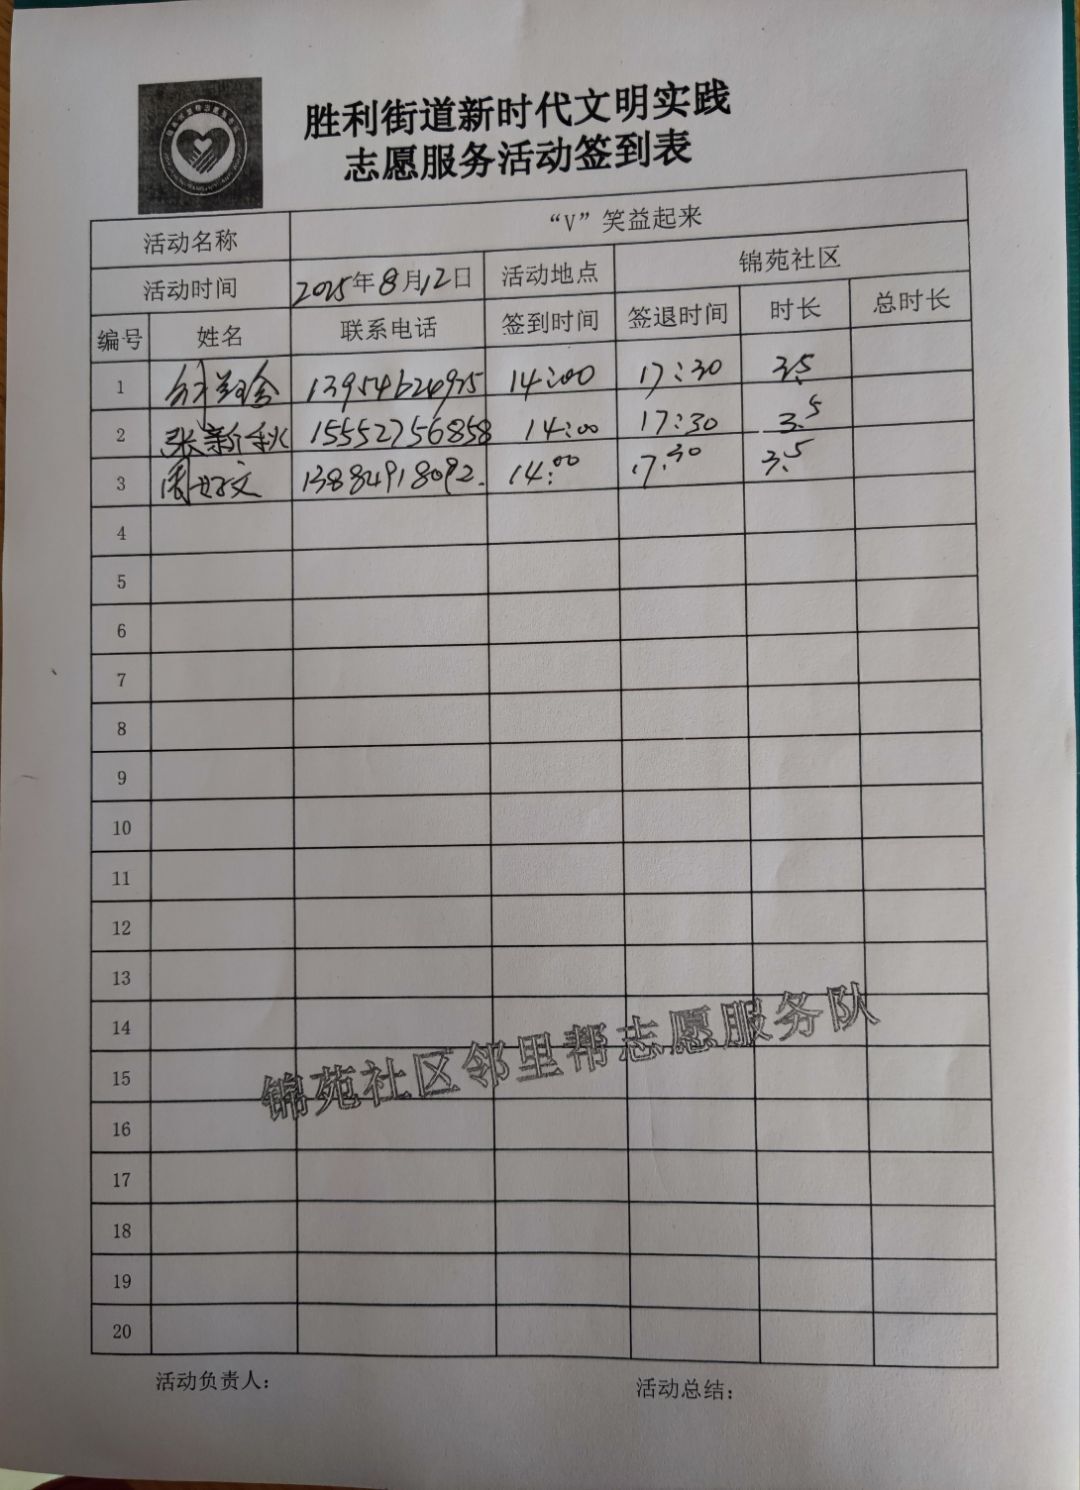 胜利街道新时代文明实践
志愿服务活动签到表
活动名称 “V”笑益起来
活动时间 2025年8月12日 活动地点 锦苑社区
编号 姓名 联系电话 签到时间 签退时间 时长 总时长
1 13954624975 14:00 17:30 3.5
2 张新秋 15552756858 14:00 17:30 3.5
3 周好文 13884918092. 14:00 17:30 3.5
4
5
6
7
8
9
10
11
12
13
14
15
16
17
18
19
20
锦苑社区邻里帮志愿服务队
活动负责人: 活动总结: